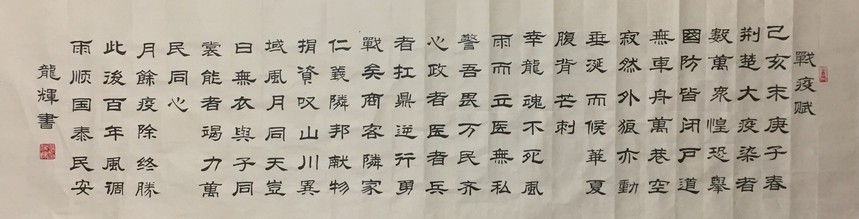 戰疫賦
己亥末庚子春
荆楚大疫染者
數萬衆惶恐舉
國防皆闭戸道
無車舟萬巷空
寂然外狼亦動
垂涎而候華夏
腹背芒刺
幸龍魂不死風
雨而立医無私
警吾畏万民齐
心政者医者兵
者扛鼎逆行勇
戰矣商客隣家
仁義隣邦献物
捐資叹山川異
域風月同天豈
曰無衣與子同
裳能者竭力萬
民同心
月餘疫除终勝
此後百年風调
雨顺国泰民安
龍輝書